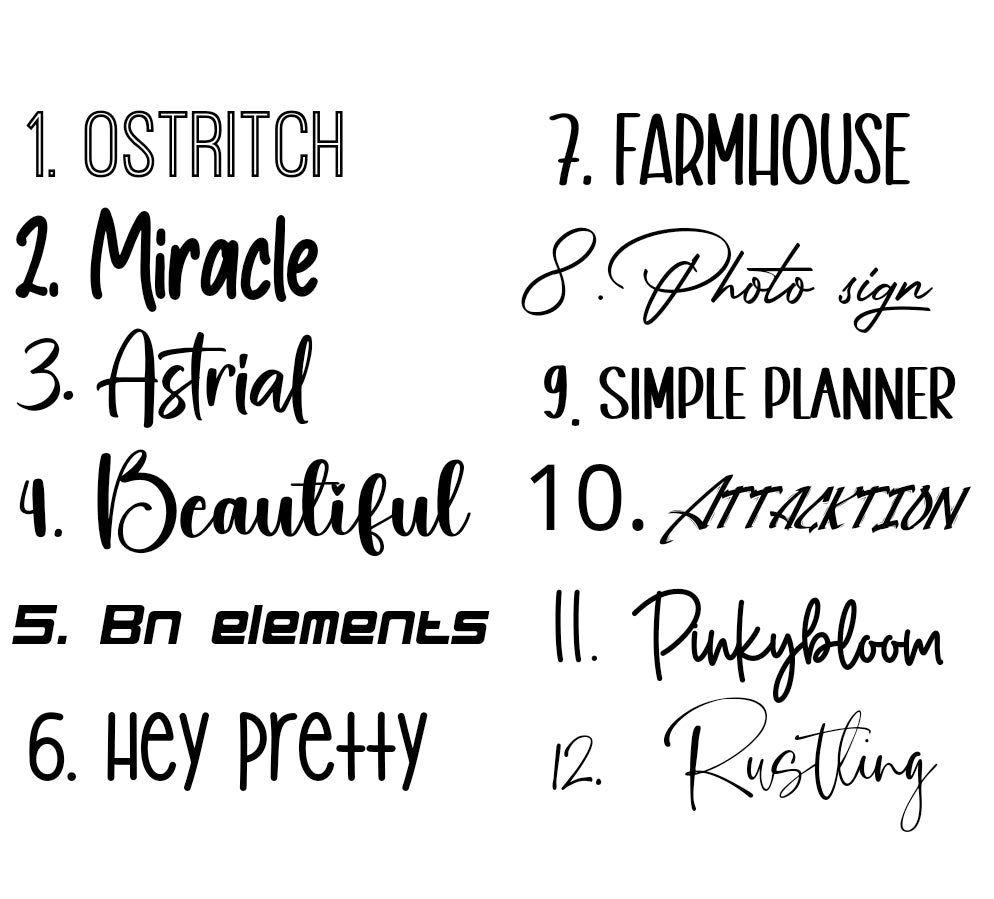 1. OSTRITCH
2. Miracle
3. Astrial
4. Beautiful
5. Bn elements
6. Hey pretty
7. FARMHOUSE
8. Photo sign
9. SIMPLE PLANNER
10. ATTACKTION
11. Pinkybloom
12. Rustling